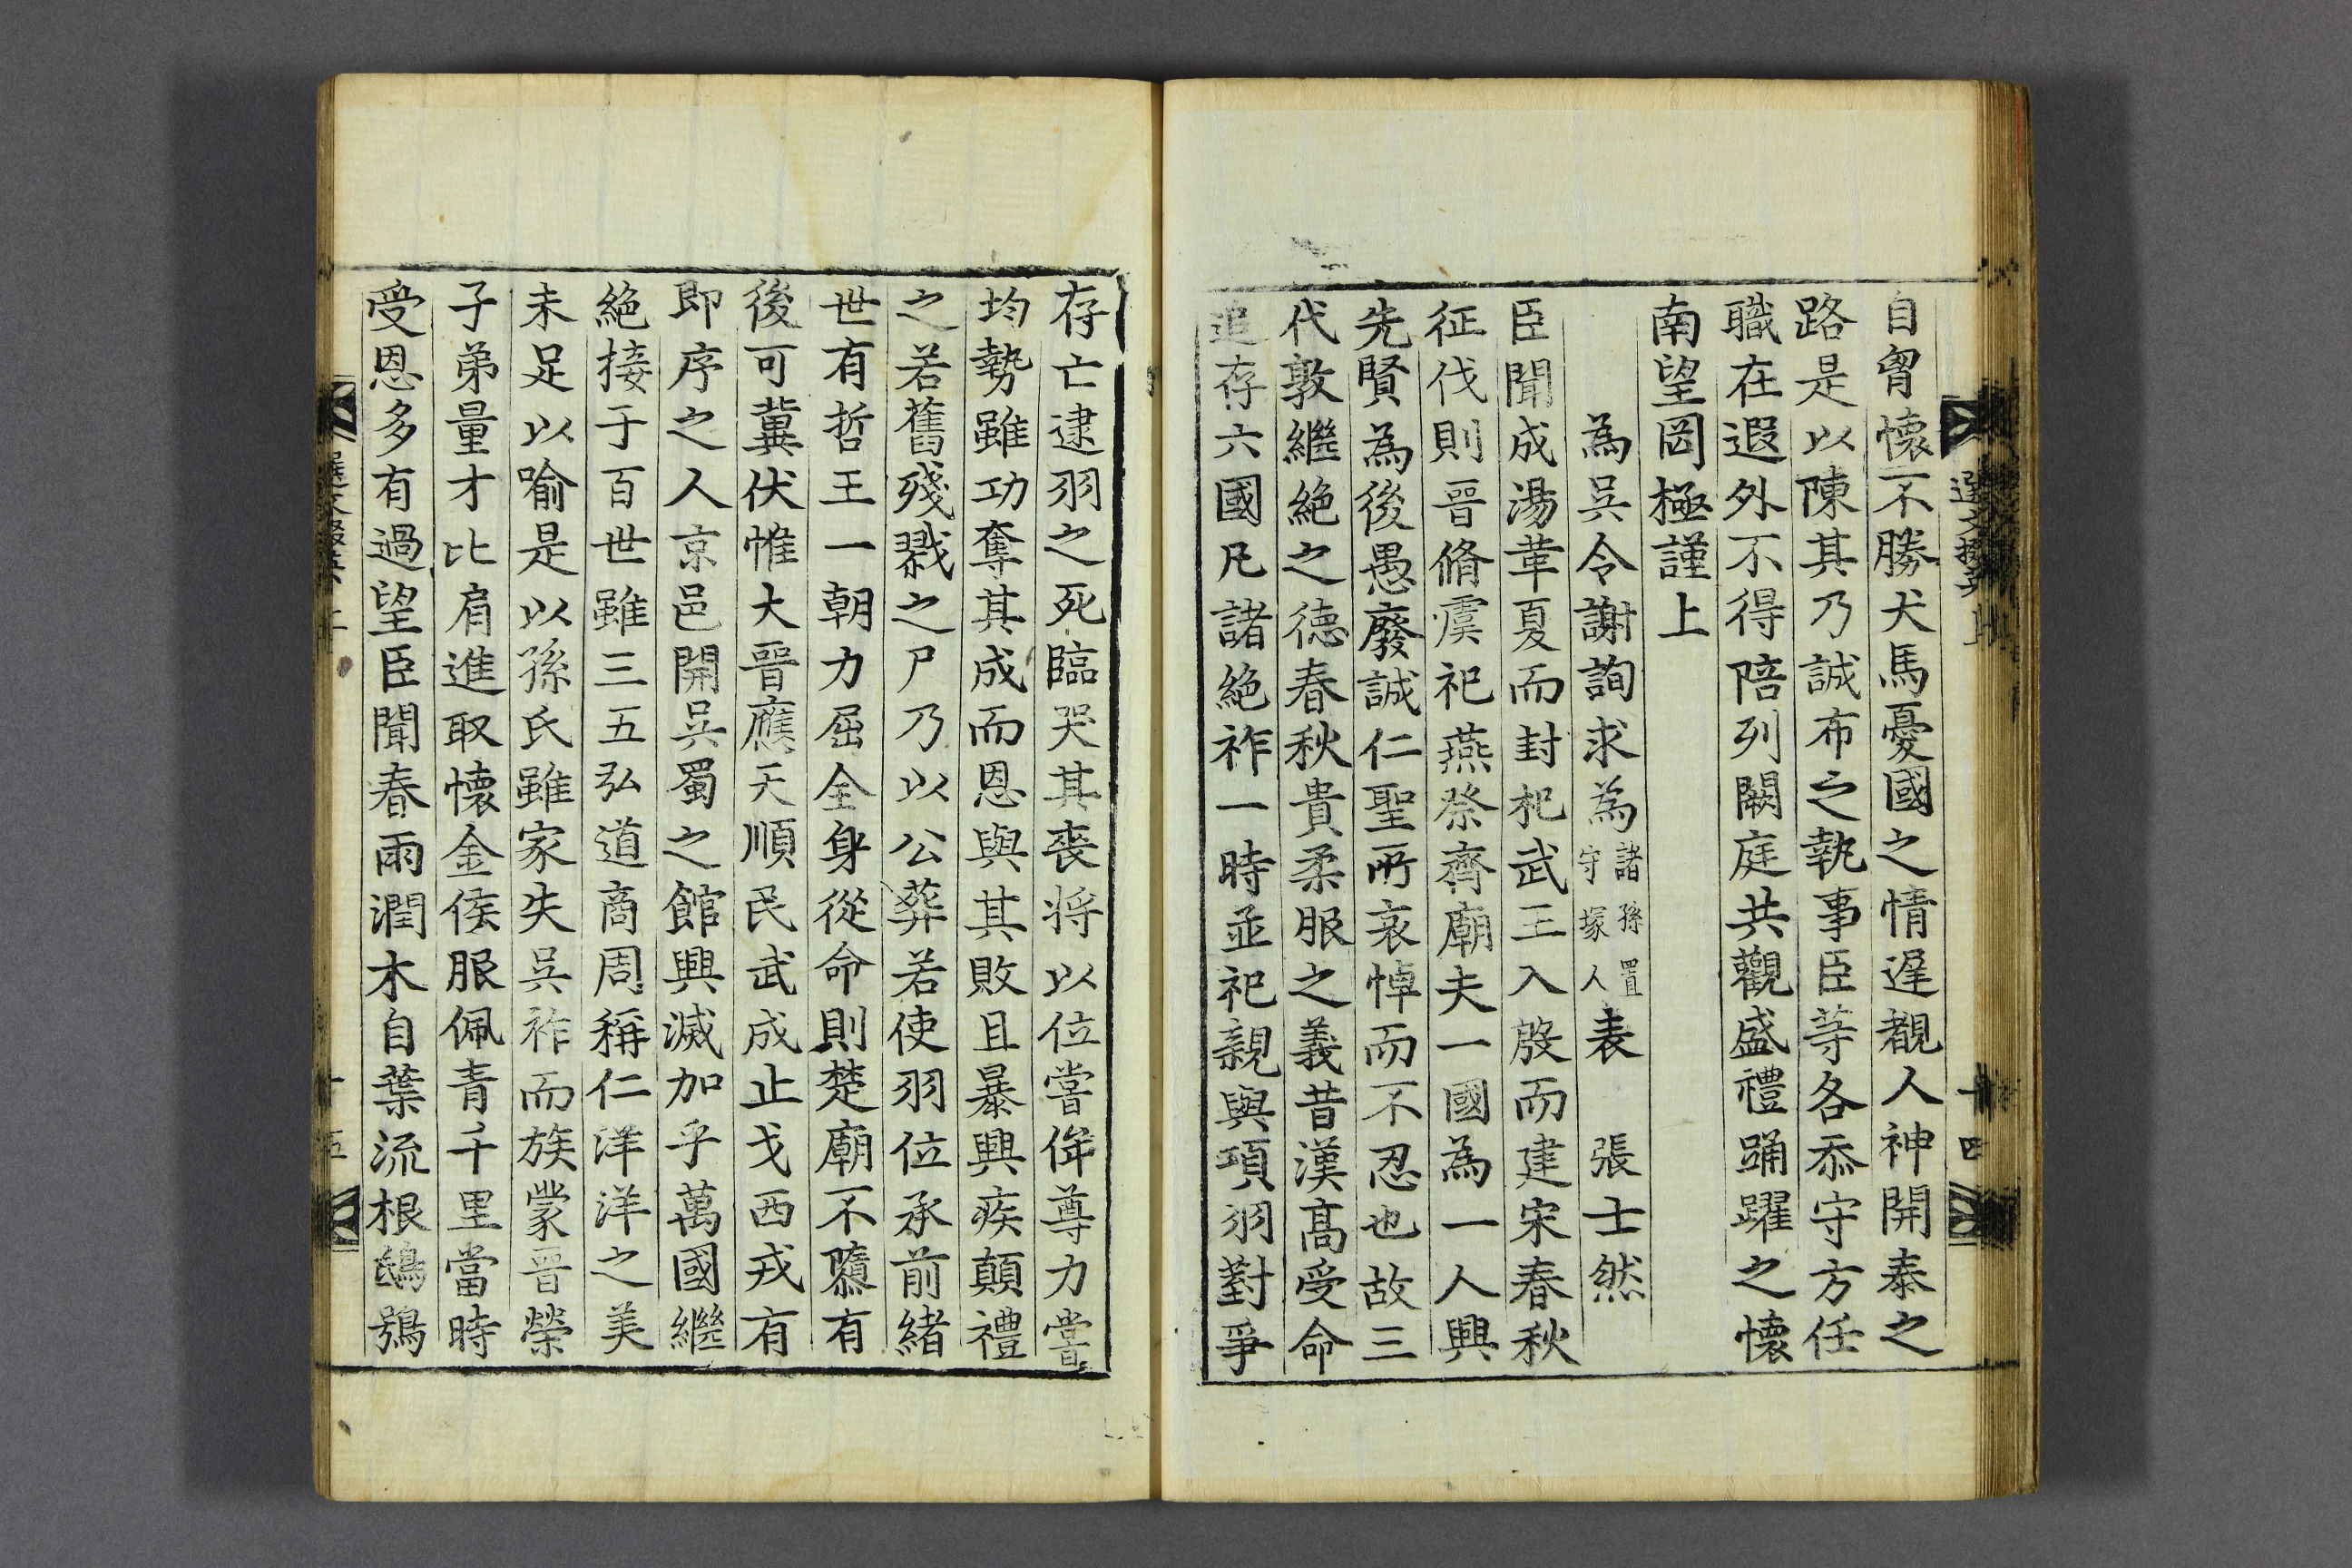 自胷懷不勝犬馬憂國之情遅覩人神開泰之
路是以陳其乃誠布之執事臣等各忝守方任
職在遐外不得陪列闕庭共觀盛禮踊躍之懷
南望罔極謹上
為吳令謝詢求為諸孫置守塚人表 張士然
臣聞成湯革夏而封杞武王入殷而建宋春秋
征伐則晉脩虞祀燕祭齊廟夫一國為一人興
先賢為後愚廢誠仁聖所哀悼而不忍也故三
代敦繼絶之德春秋貴柔服之義昔漢高受命
追存六國凡諸絶祚一時並祀親與項羽對爭
存亡逮羽之死臨哭其喪将以位嘗侔尊力嘗
均勢雖功奪其成而恩與其敗且暴興疾顛禮
之若舊殘戮之尸乃以公葬若使羽位承前緒
世有哲王一朝力屈全身從命則楚廟不隳有
後可冀伏惟大晉應天順民武成止戈西戎有
即序之人京邑開吳蜀之館興滅加乎萬國繼
絶接于百世雖三五弘道商周稱仁洋洋之美
未足以喻是以孫氏雖家失吳祚而族蒙晉榮
子弟量才比肩進取懷金侯服佩青千里當時
受恩多有過望臣聞春雨潤木自葉流根鴟鴞